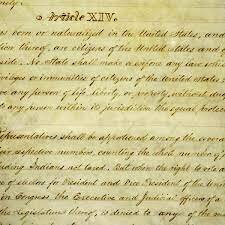 Article XIV.
born or naturalized in the United States, and
tion thereof, are citizens of the United States and o
side. No State shall make or enforce any law which
vileges or immunities of citizens of the United States
any person of life, liberty, or property, without du
to any person within its jurisdiction the equal protec
presentatives shall be apportioned among the severa
respective numbers, counting the whole number of
luding Indians not taxed. But when the right to
of electors for President and Vice President of the Unite
in Congress, the Executive and Judicial officers of a
the Legislature thereof, is denied to any of the